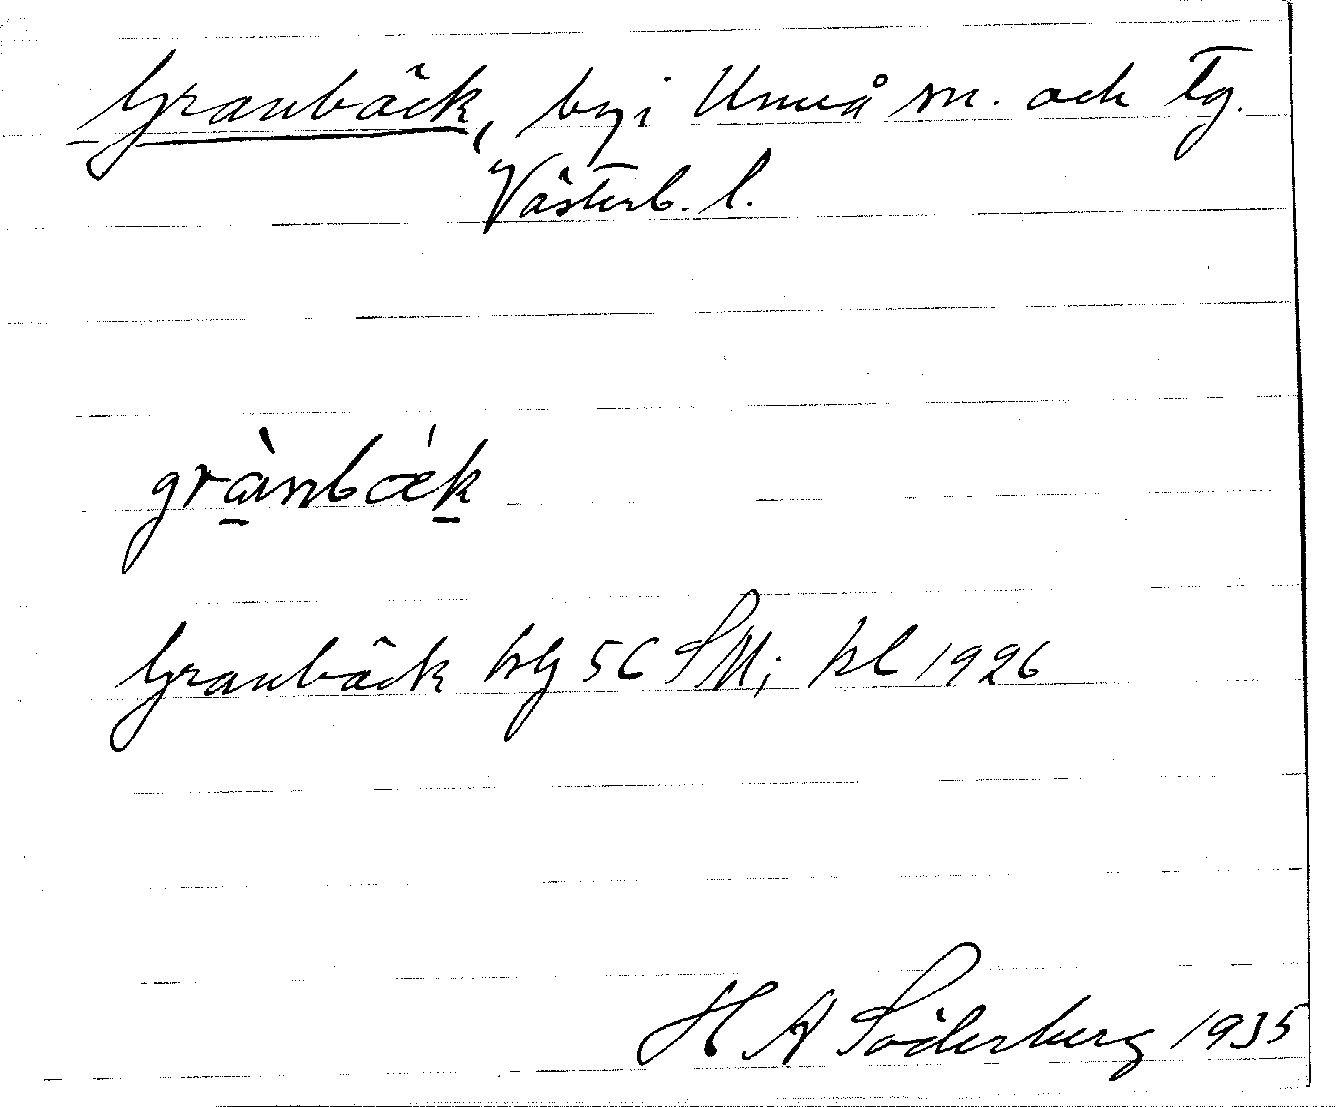 Granbäck, by i Umeå sn. och Tg.
Västerb. l.
grànbǽk
Granbäck blg 56 SM; bl 1926
H A Söderberg 1935